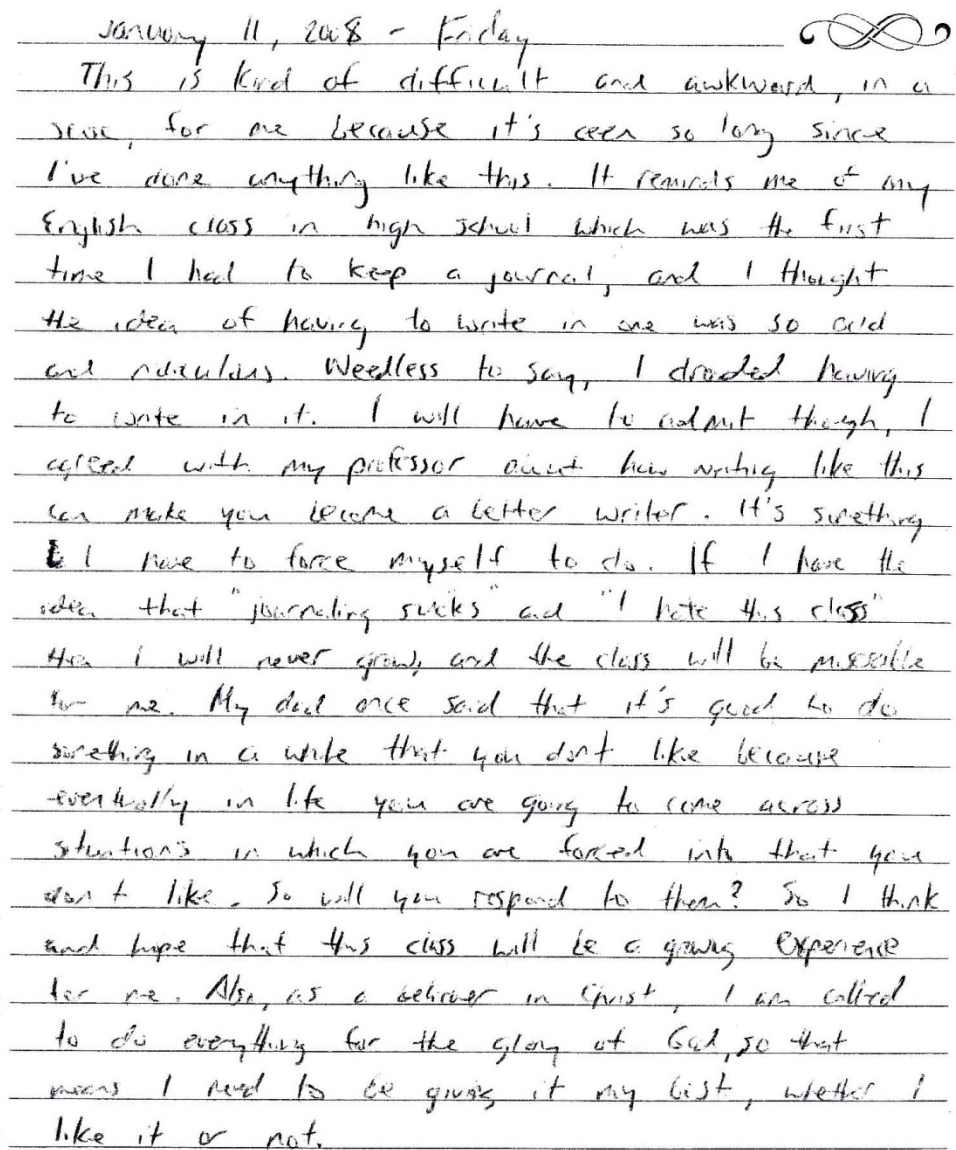 January 11, 2008 - Friday
This is kind of difficult and awkward, in a
sense, for me because it's been so long since
I've done anything like this. It reminds me of my
English class in high school which was the first
time I had to keep a journal, and I thought
the idea of having to write in one was so odd
and ridiculous. Needless to say, I dreaded having
to write in it. I will have to admit though, I
agreed with my professor about how writing like this
can make you become a better writer. It's something
I have to force myself to do. If I have the
idea that "journaling sucks" and "I hate this class"
then I will never grow, and the class will be miserable
for me. My dad once said that it's good to do
something in a while that you don't like because
eventually in life you are going to come across
situations in which you are forced into that you
don't like. So will you respond to them? So I think
and hope that this class will be a growing experience
for me. Also, as a believer in Christ, I am called
to do everything for the glory of God, so that
means I need to be giving it my best, whether I
like it or not.